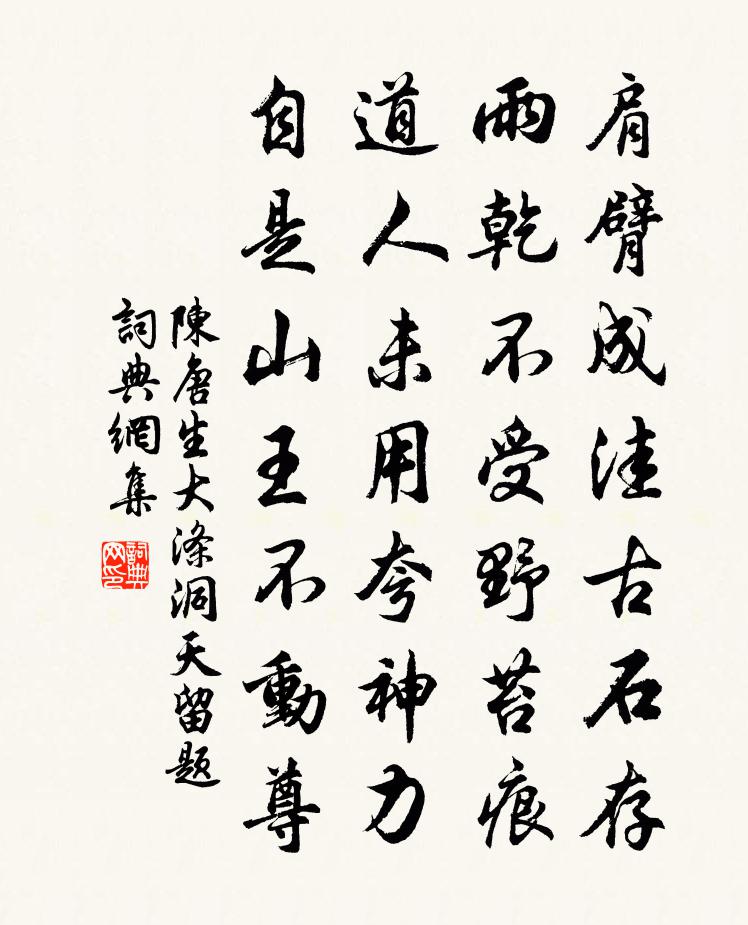 肩臂成洼古石存
雨乾不受野苔痕
道人未用夸神力
自是山王不動尊
陳唐生大滌洞天留題
詞典網集
詞典网印